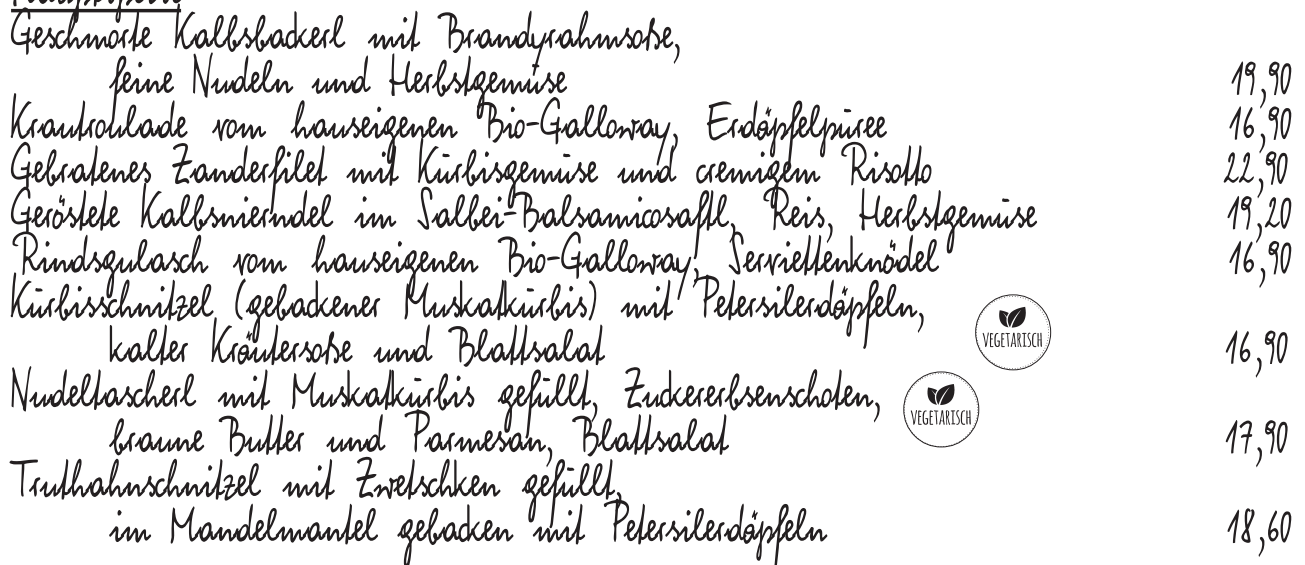 Geschmorte Kalbsbackerl mit Brandyrahmsoße,
feine Nudeln und Herbstgemüse 19,90
Krautroulade vom hauseigenen Bio-Galloway, Erdäpfelpüree 16,90
Gebratenes Zanderfilet mit Kürbisgemüse und cremigem Risotto 22,90
Geröstete Kalbsnierndel im Salbei-Balsamicosaftl, Reis, Herbstgemüse 19,20
Rindsgulasch vom hauseigenen Bio-Galloway, Serviettenknödel 16,90
Kürbisschnitzel (gebackener Muskatkürbis) mit Petersilerdäpfeln,
kalter Kräutersoße und Blattsalat VEGETARISCH 16,90
Nudeltascherl mit Muskatkürbis gefüllt, Zuckererbsenschoten, VEGETARISCH
braune Butter und Parmesan, Blattsalat 17,90
Truthahnschnitzel mit Zwetschken gefüllt,
im Mandelmantel gebacken mit Petersilerdäpfeln 18,60